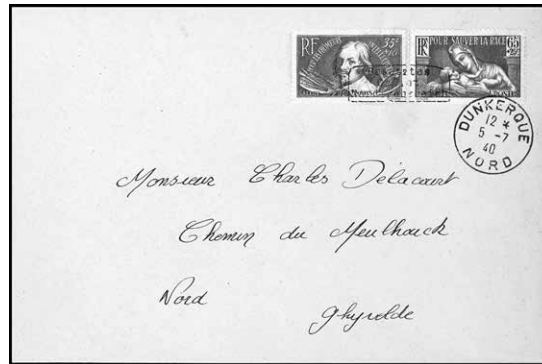 RF 35c
POUR SAUVER LA RACE
65
DUNKERQUE
12 *
5 -7
40
NORD
Monsieur Charles Delacourt
Chemin du Meulhouck
Nord
Ghyvelde